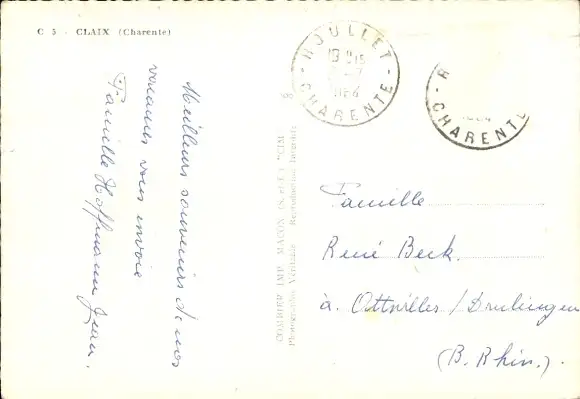 C 5 - CLAIX (Charente)
Meilleurs souvenirs de nos
vacances vous envoie
Famille Hoffmann Jean.
COMBIER IMP. MACON (S.-et-L.) "CIM"
Photographie Véritable - Reproduction Interdite
ROULLET
CHARENTE
CHARENTE
Famille
René Beck.
à Ottwiller / Drulingen
(B. Rhin.).